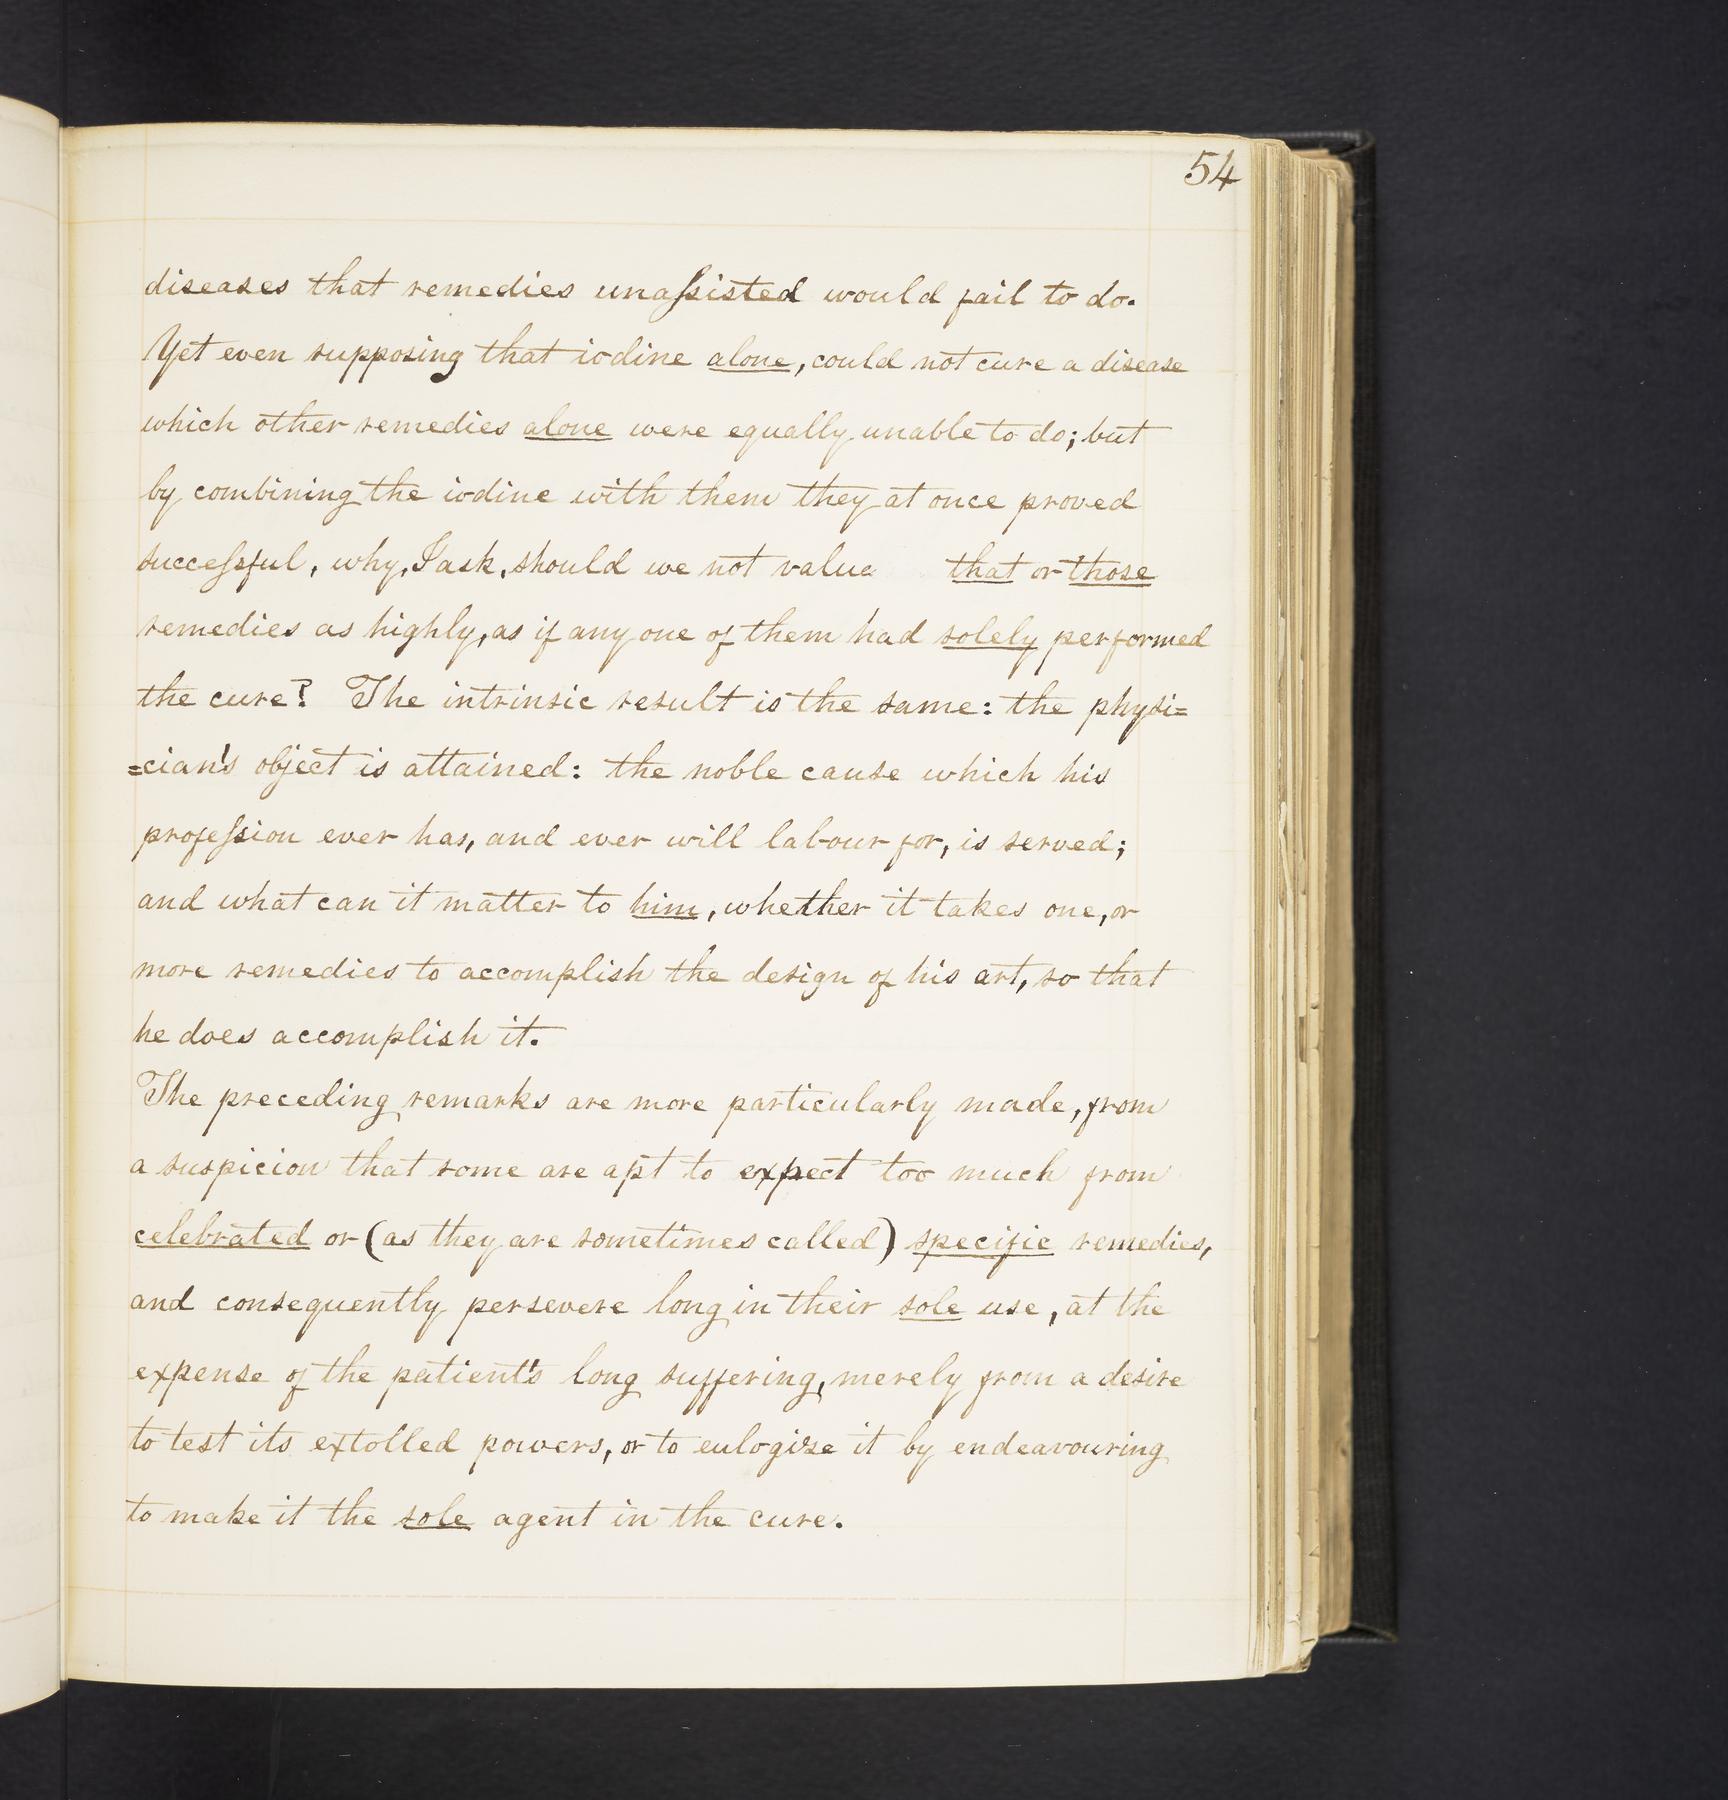 54
diseases that remedies unaſsisted would fail to do.
Yet even supposing that iodine alone, could not cure a disease
which other remedies alone were equally unable to do; but
by combining the iodine with them they at once proved
succeſsful, why, I ask, should we not value that or those
remedies as highly, as if any one of them had solely performed
the cure? The intrinsic result is the same: the physi=
=cian's object is attained: the noble cause which his
profeſsion ever has, and ever will labour for, is served;
and what can it matter to him, whether it takes one, or
more remedies to accomplish the design of his art, so that
he does accomplish it.
The preceding remarks are more particularly made, from
a suspicion that some are apt to expect too much from
celebrated or (as they are sometimes called) specific remedies,
and consequently persevere long in their sole use, at the
expense of the patient's long suffering, merely from a desire
to test its extolled powers, or to eulogize it by endeavouring
to make it the sole agent in the cure.